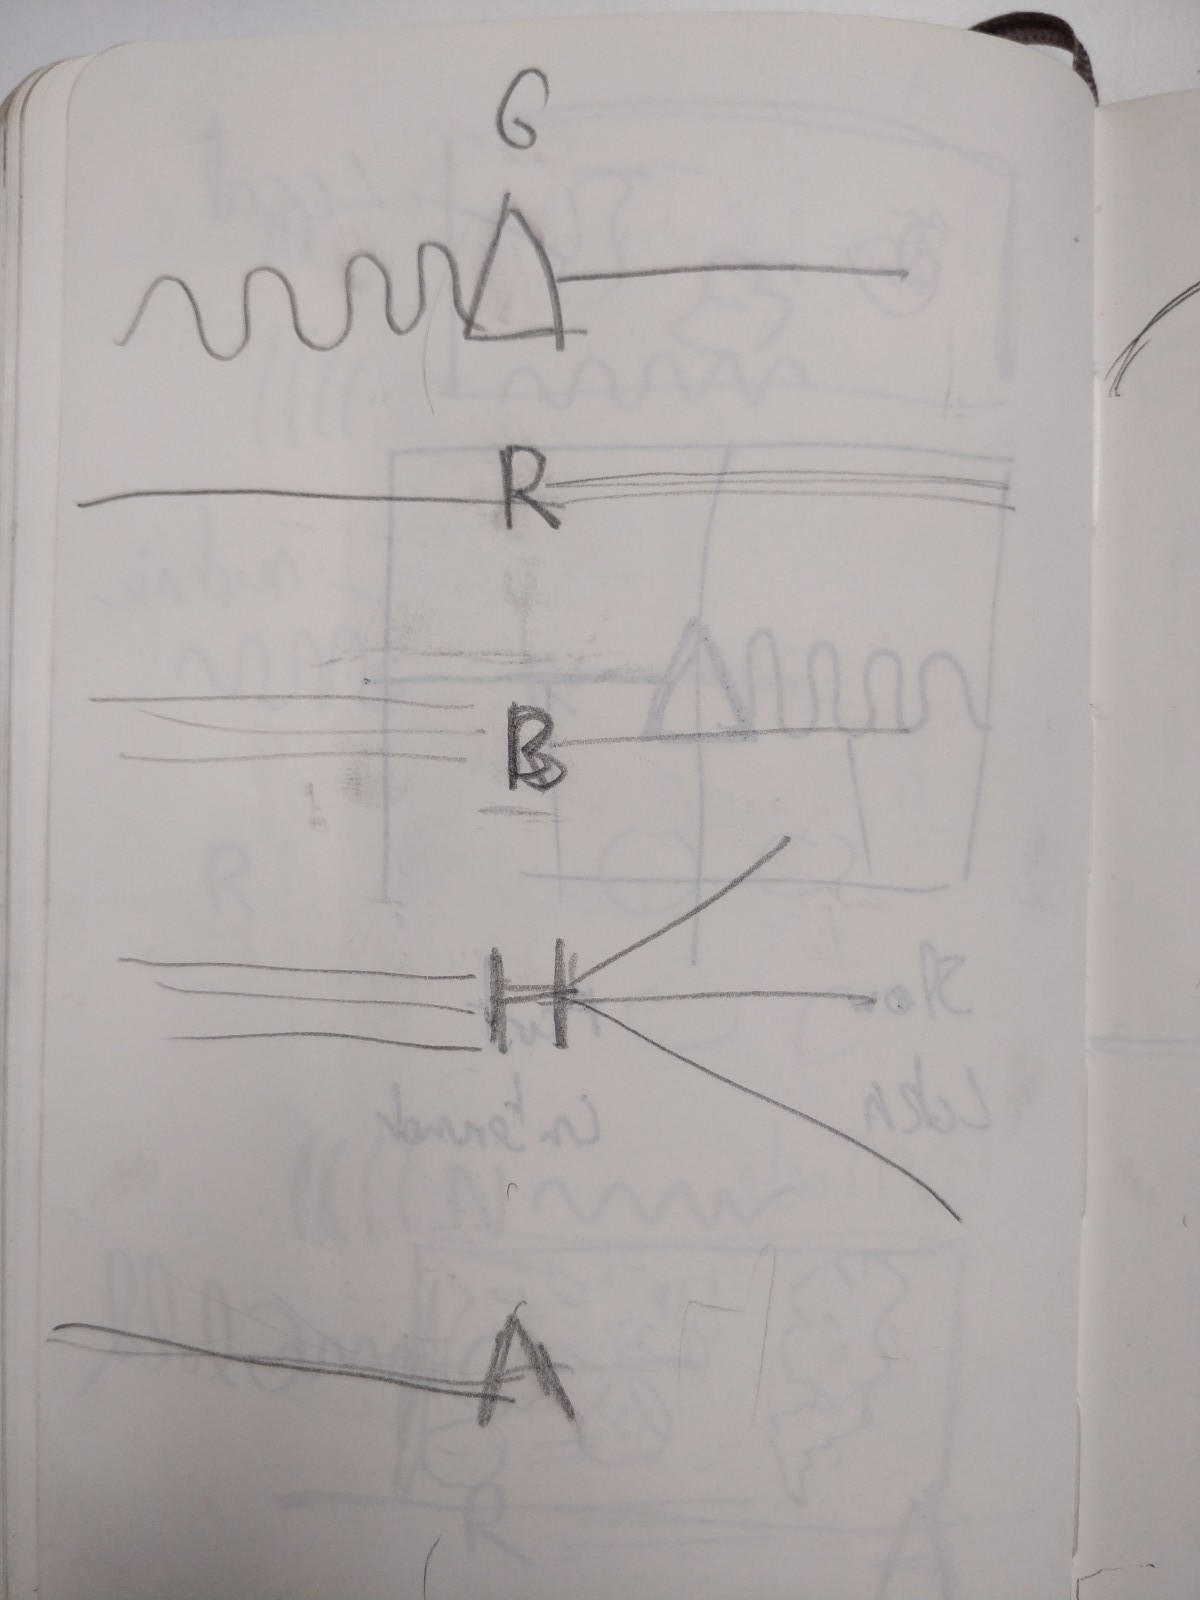 G
R
B
H
A